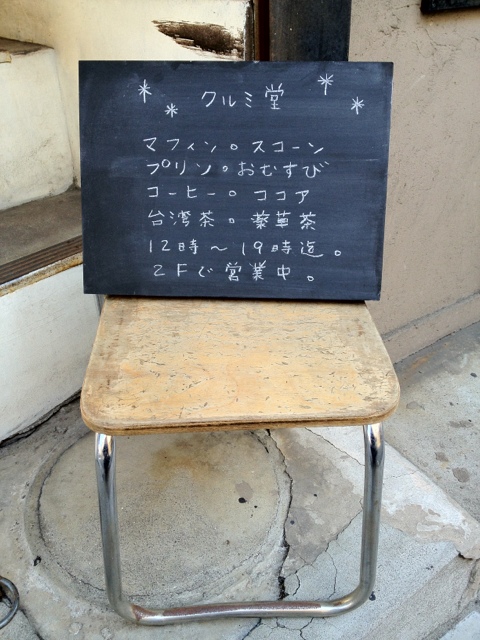 クルミ堂
マフィン。スコーン
プリン。おむすび
コーヒー。ココア
台湾茶。薬草茶
12時～19時迄。
2Fで営業中。